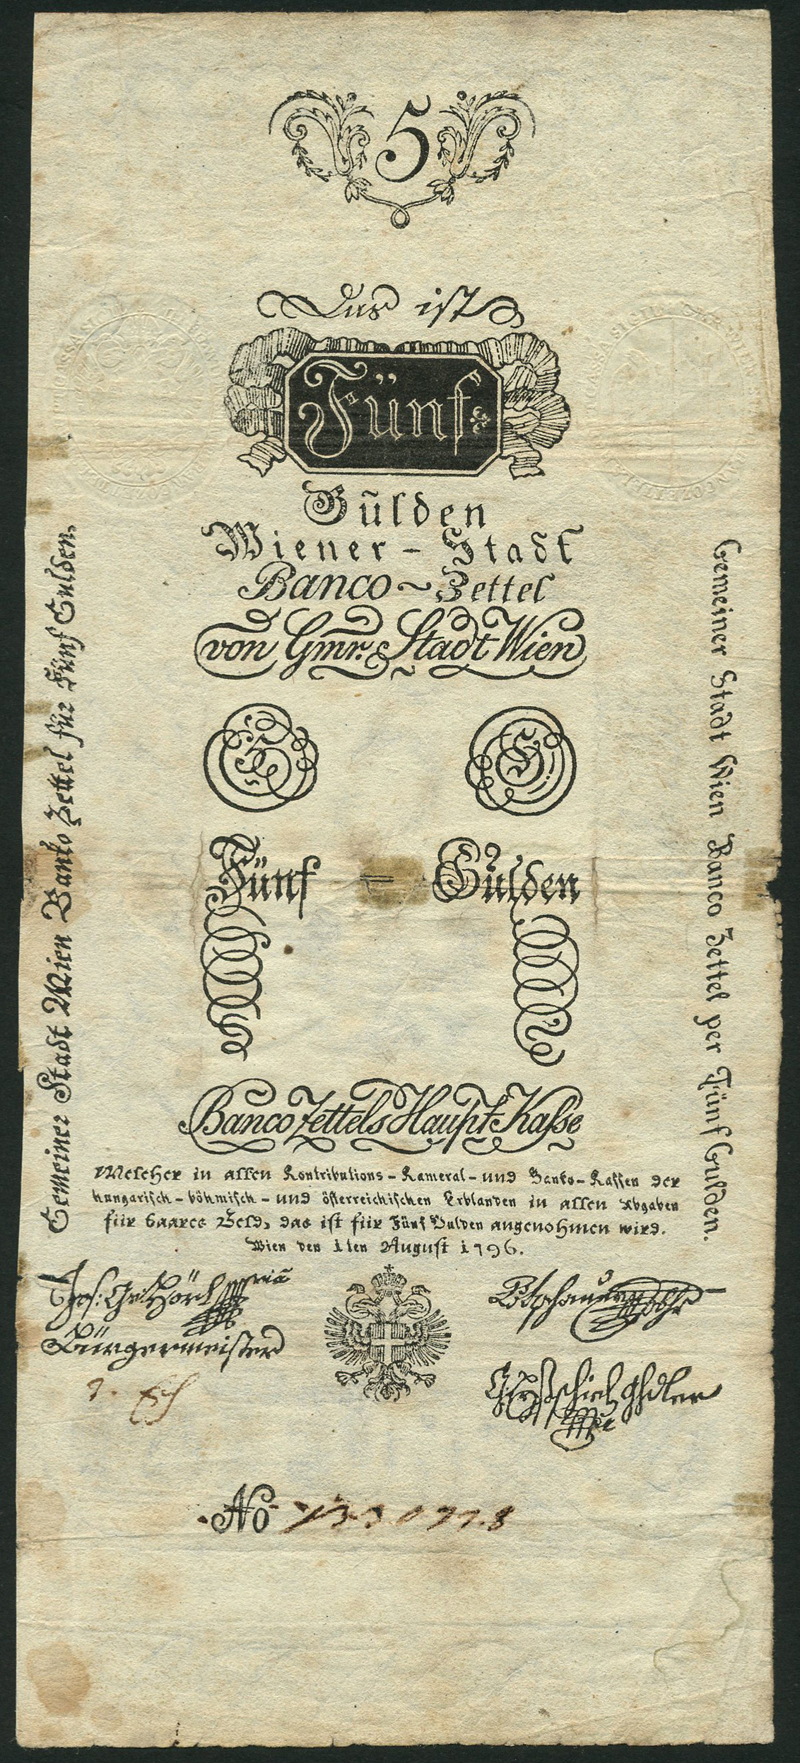 5
Das ist
Fünf
Gülden
Wiener-Stadt
Banco-Zettel
von Gmr. Stadt Wien
Fünf = Gulden
Banco Zettels Haupt Kasse
Welcher in allen Kontributions-Kameral-und Banko-Kassen der
hungarisch-böhmisch-und österreichischen Erblanden in allen Abgaben
für baares Geld, das ist für Fünf Gulden angenohmen wird.
Wien den 1ten August 1796.
Gemeiner Stadt Wien Banko Zettel für Fünf Gulden.
Gemeiner Stadt Wien Banco Zettel per Fünf Gulden.
Jos: Hörl
Bürgermeister
No